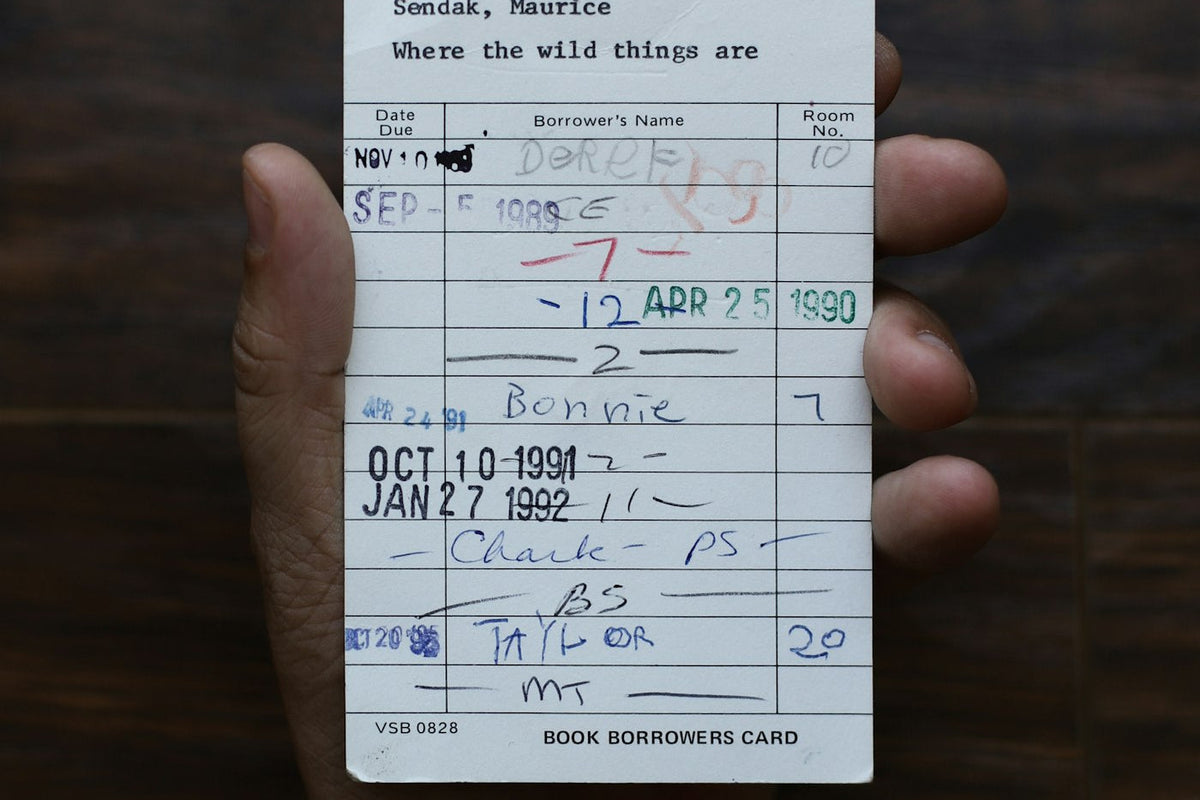 Sendak, Maurice
Where the wild things are
Date Due Borrower's Name Room No.
NOV 10 DEREK 10
SEP - 5 1989 CE
- 7 -
- 12 APR 25 1990
- 2 -
APR 24 '91 Bonnie 7
OCT 10 1991 - 2 -
JAN 27 1992 - 11 -
- - PS -
- BS -
OCT 20 '95 TAYLOR 20
- MT -
VSB 0828 BOOK BORROWERS CARD